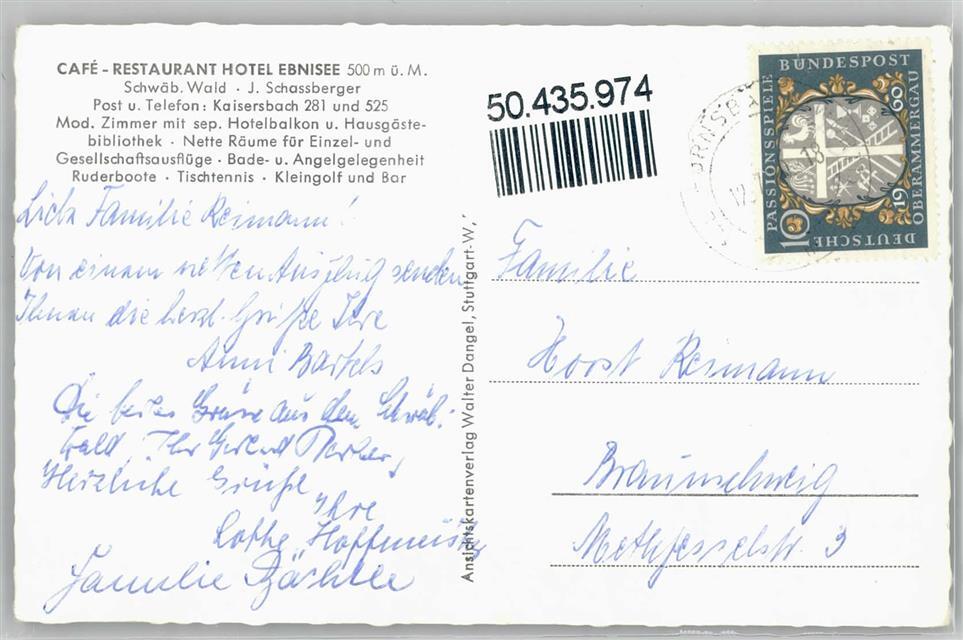 CAFÉ - RESTAURANT HOTEL EBNISEE 500 m ü. M.
Schwäb. Wald · J. Schassberger
Post u. Telefon: Kaisersbach 281 und 525
Mod. Zimmer mit sep. Hotelbalkon u. Hausgäste-
bibliothek · Nette Räume für Einzel- und
Gesellschaftsausflüge · Bade- u. Angelgelegenheit
Ruderboote · Tischtennis · Kleingolf und Bar
Liebe Familie Reimann!
Von einem netten Ausflug senden
Ihnen die herzl. Grüße Ihre
Anni Bartels
Die besten Grüße aus dem Schwäb.
Wald, Ihr
Herzliche Grüße
Ihre
Lothe Hoffmeister
Familie
Ansichtskartenverlag Walter Dangel, Stuttgart-W,
50.435.974
BUNDESPOST
PASSIONSSPIELE
OBERAMMERGAU
1960
10
DEUTSCHE
Familie
Horst Reimann
Braunschweig
Methfesselstr. 3